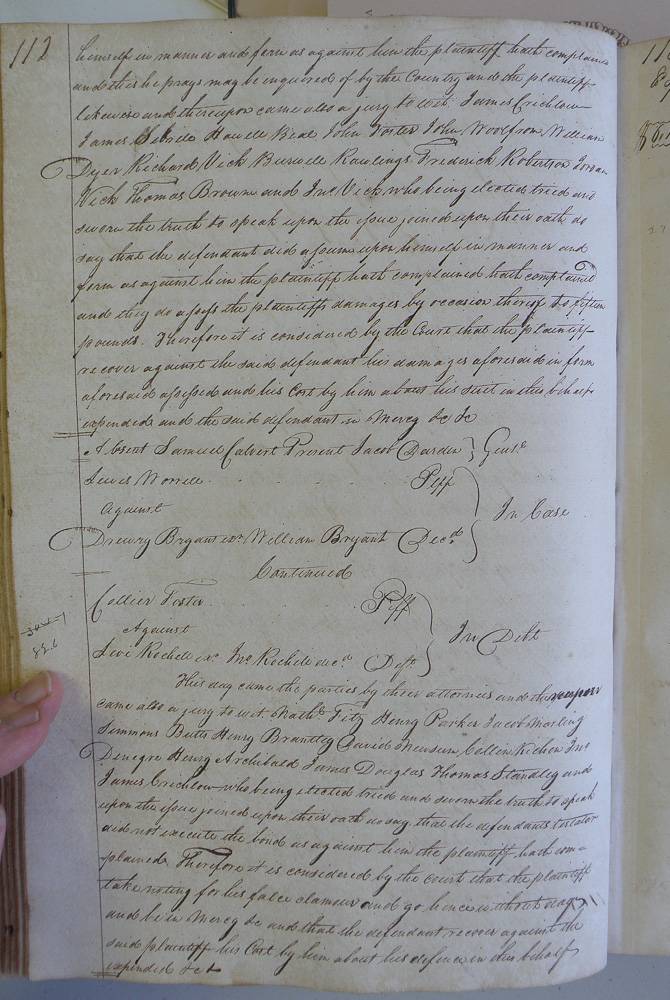 112
himself in manner and form as against him the plaintiff hath complained
and this he prays may be inquired of by the Country and the plaintiff
likewise and thereupon came also a jury to wit James Crichlow
James Howell Beal John Foster John Woolfrom William
Dyer Richard Vick Burwell Rawlings Frederick Robertson Jordan
Vick Thomas Brown and Jno Vick who being elected tried and
sworn the truth to speak upon the issue joined upon their oath do
say that the defendant did assume upon himself in manner and
form as against him the plaintiff hath complained hath complained
and they do assess the plaintiffs damages by occasion thereof to fifteen
pounds. Therefore it is considered by the Court that the plaintiff
recover against the said defendant his damages aforesaid in form
aforesaid assessed and his Cost by him about his suit in this behalf
expended and the said defendant in Mercy &c &c
Absent Samuel Calvert Present Jacob Darden } Gent.
Lewis Worrell Plff
against
In Case
Drewry Bryant exr. William Bryant Decd.
Continued
Collier Foster Plff
Against
In Debt
Levi Rochell exr Jno Rochell decd Deft.
This day came the parties by their attornies and thereupon
came also a jury to wit. Nathl. Fitz Henry Parker Jacob
Simmons Butts Henry Brantley David Collin Kichen Jno
Denegre Henry Archibald James Douglas Thomas Standley and
James Crichlow who being elected tried and sworn the truth to speak
upon the issue joined upon their oath do say that the defendants testator
did not execute the bond as against him the plaintiff hath com=
plained Therefore it is considered by the court that the plaintiff
take noting for his false clamour and go hence without day
and be in Mercy &c and that the defendant recover against the
said plaintiff his Cost by him about his defence in this behalf
expended &c